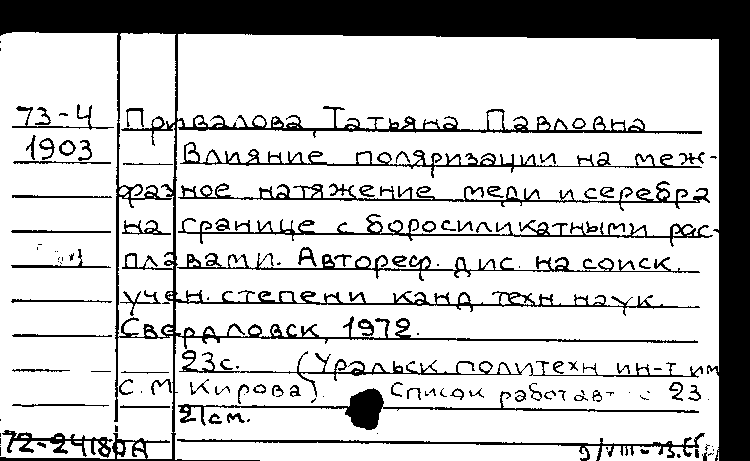 73-4 Привалова, Татьяна Павловна
1903 Влияние поляризации на меж-
фазное натяжение меди и серебра
на границе с боросиликатными рас-
плавами. Автореф. дис. на соиск.
учен. степени канд. техн. наук.
Свердловск, 1972.
23с. (Уральск. политехн ин-т им
С.М. Кирова). Список работ авт с 23.
21см.
72-24180А
9/VIII-73.